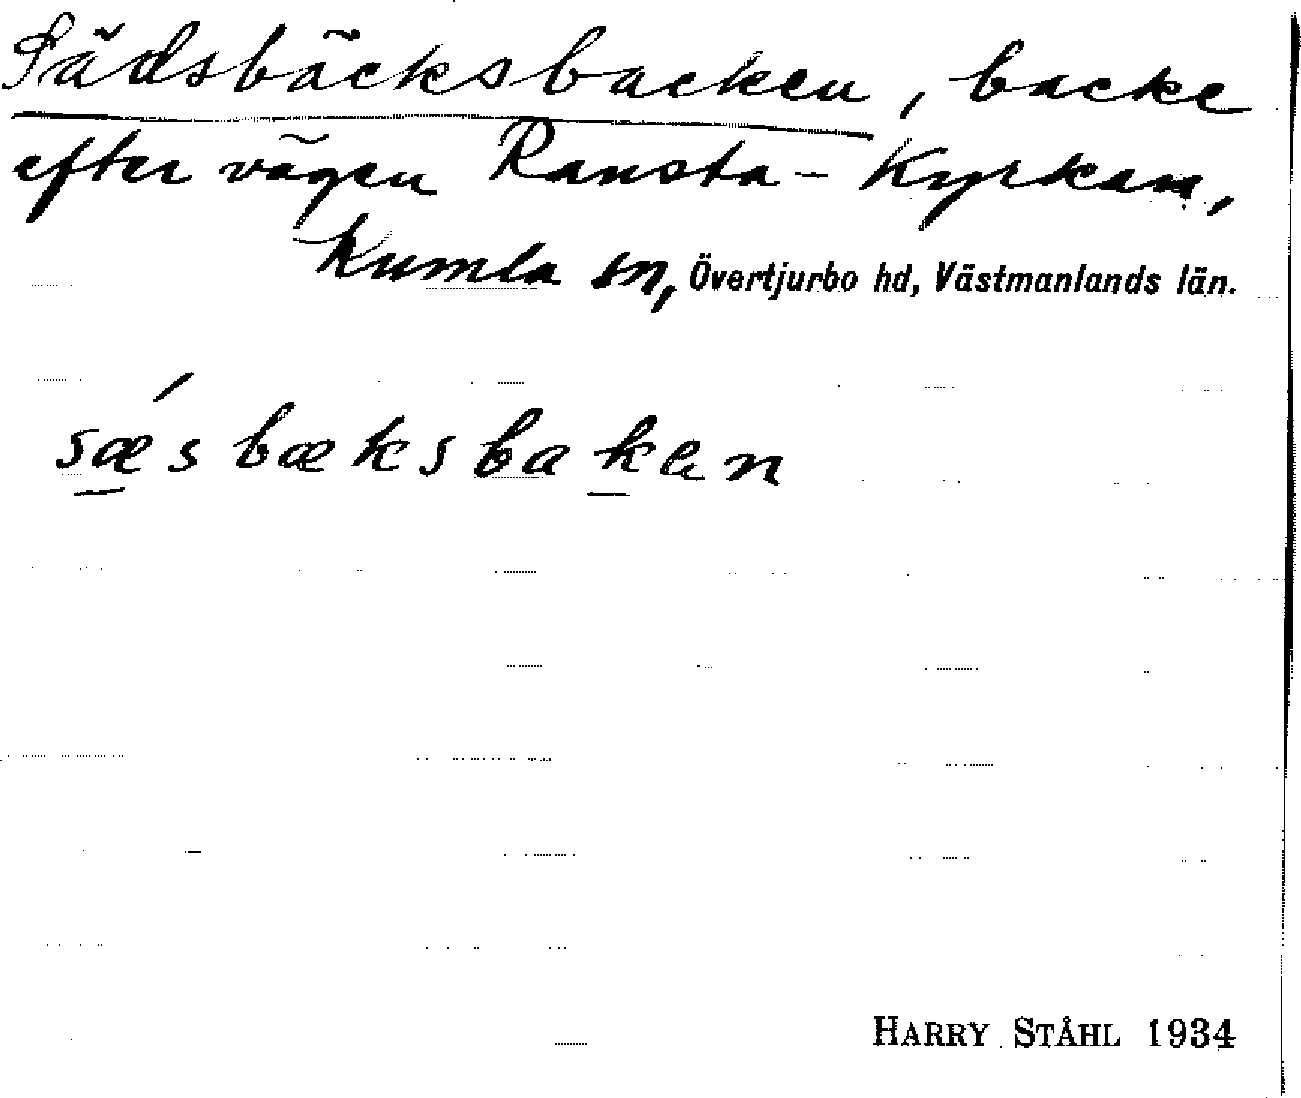 Sädsbäcksbacken, backe
efter vägen Ransta - Kyrkan,
Kumla sn, Övertjurbo hd, Västmanlands län.
sǽsbæksbaken
HARRY STÅHL 1934